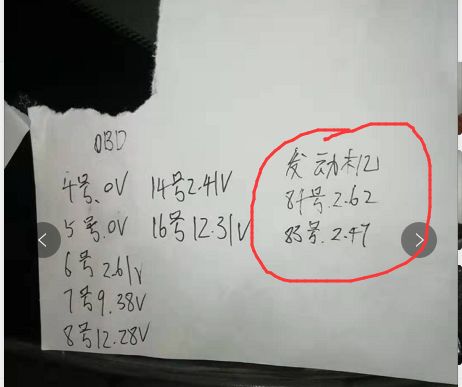 OBD
4号.0V 14号2.41V
5号.0V 16号12.31V
6号2.61V
7号9.38V
8号12.28V
发动机
84号.2.62
83号.2.47